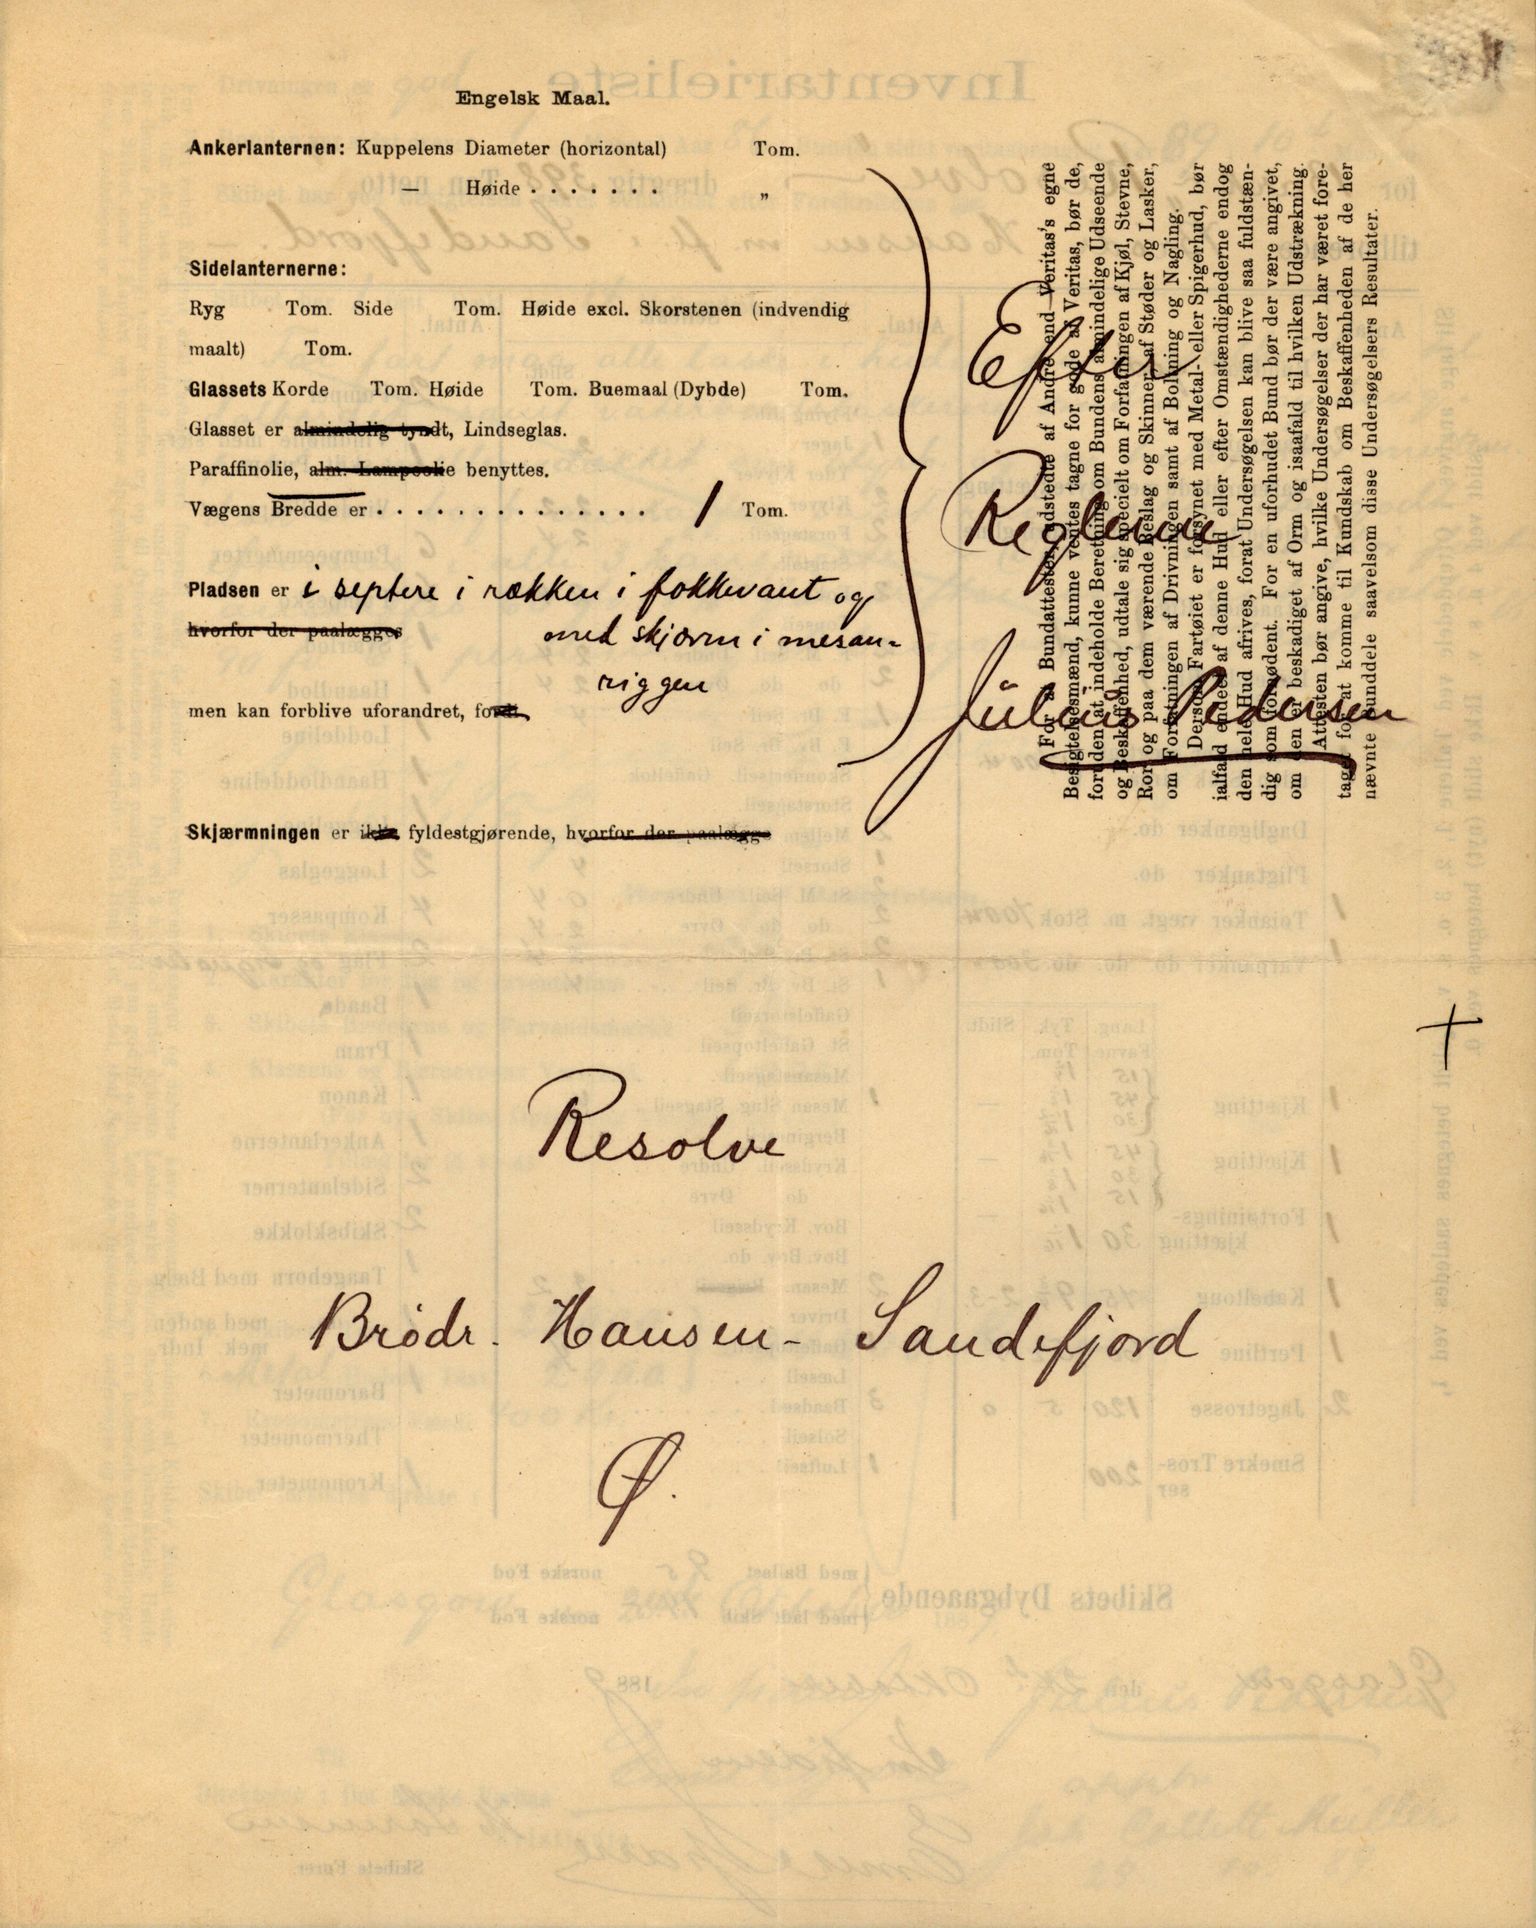 Engelsk Maal.
Ankerlanternen: Kuppelens Diameter (horizontal) Tom.
— Høide . . . . . . . „
Sidelanternerne:
Ryg Tom. Side Tom. Høide excl. Skorstenen (indvendig
maalt) Tom.
Glassets Korde Tom. Høide Tom. Buemaal (Dybde) Tom.
Glasset er almindelig tyndt, Lindseglas.
Paraffinolie, alm. Lampeolie benyttes.
Vægens Bredde er . . . . . . . . . . . . . . 1 Tom.
Pladsen er i septere i rækken i fokkevant og
hvorfor der paalægges med skjærm i mesan-
riggen
men kan forblive uforandret, fordi
Skjærmningen er ikke fyldestgjørende, hvorfor der paalægge
Efter
Reglerne
Julius Pedersen
For at Bundattester, udstedte af Andre end Veritas's egne
Besigtelsesmænd, kunne ventes tagne for gode af Veritas, bør de,
foruden at indeholde Beretning om Bundens almindelige Udseende
og Beskaffenhed, udtale sig specielt om Forfatningen af Kjøl, Stevne,
Ror og paa dem værende Beslag og Skinner, af Støder og Lasker,
om Forfatningen af Drivningen samt af Boltning og Nagling.
Dersom Fartøiet er forsynet med Metal- eller Spigerhud, bør
ialfald endeel af denne Hud eller efter Omstændighederne endog
den hele Hud afrives, forat Undersøgelsen kan blive saa fuldstæn-
dig som fornødent. For en uforhudet Bund bør der være angivet,
om den er beskadiget af Orm og isaafald til hvilken Udstrækning.
Attesten bør angive, hvilke Undersøgelser der har været fore-
taget forat komme til Kundskab om Beskaffenheden af de her
nævnte Bunddele saavelsom disse Undersøgelsers Resultater.
Resolve
Brødr. Hansen - Sandefjord
Ø.